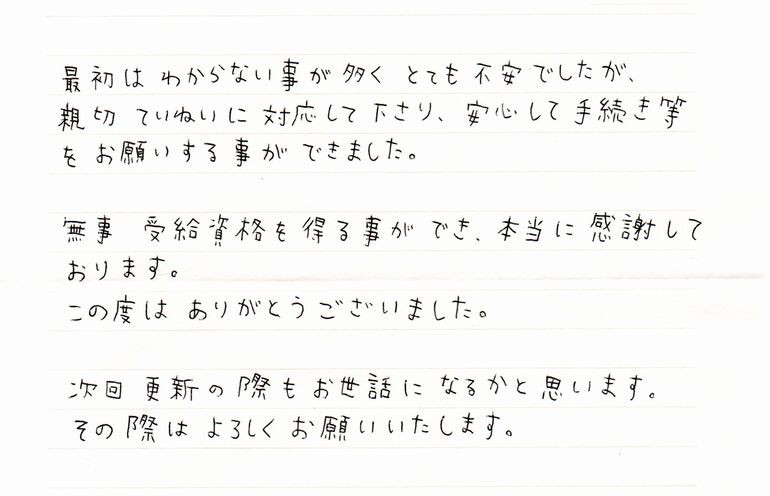 最初は わからない事が多く とても 不安でしたが、
親切 ていねいに 対応して下さり、安心して手続き等
を お願いする事が できました。
無事 受給資格を得る事ができ、本当に感謝して
おります。
この度は ありがとうございました。
次回 更新の際もお世話に なるかと思います。
その際は よろしく お願いいたします。